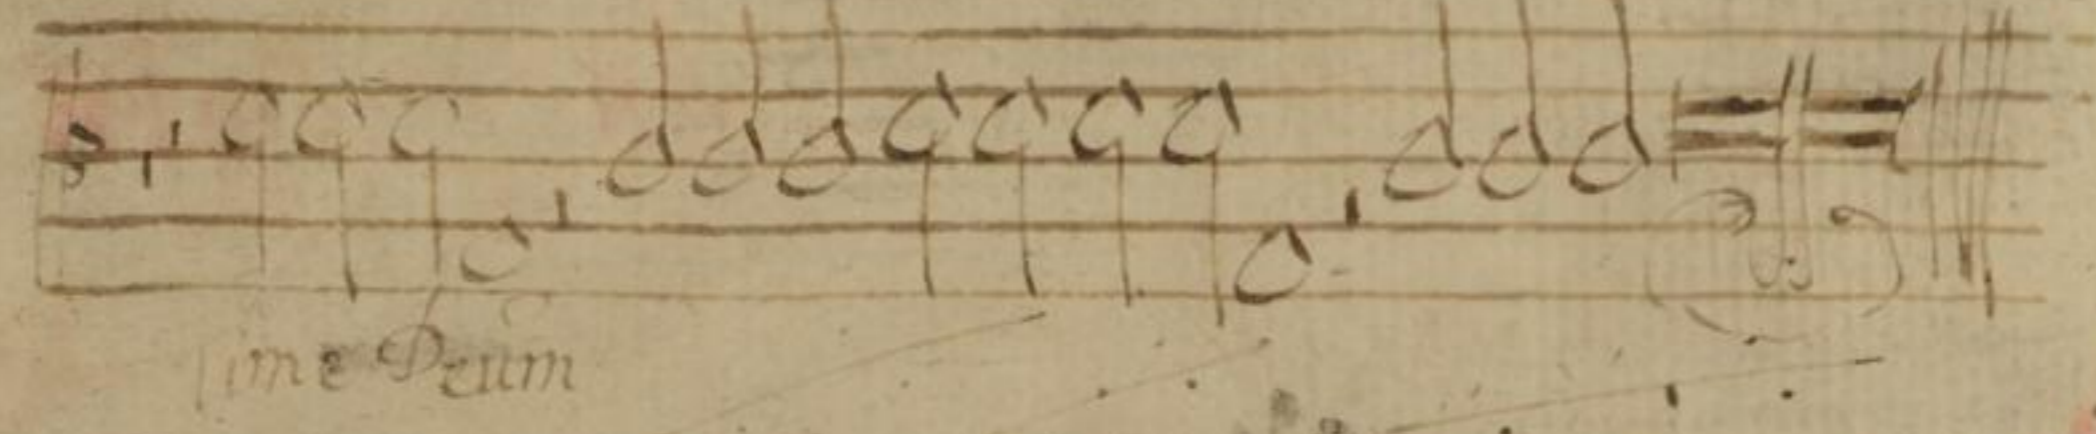 Time Deum